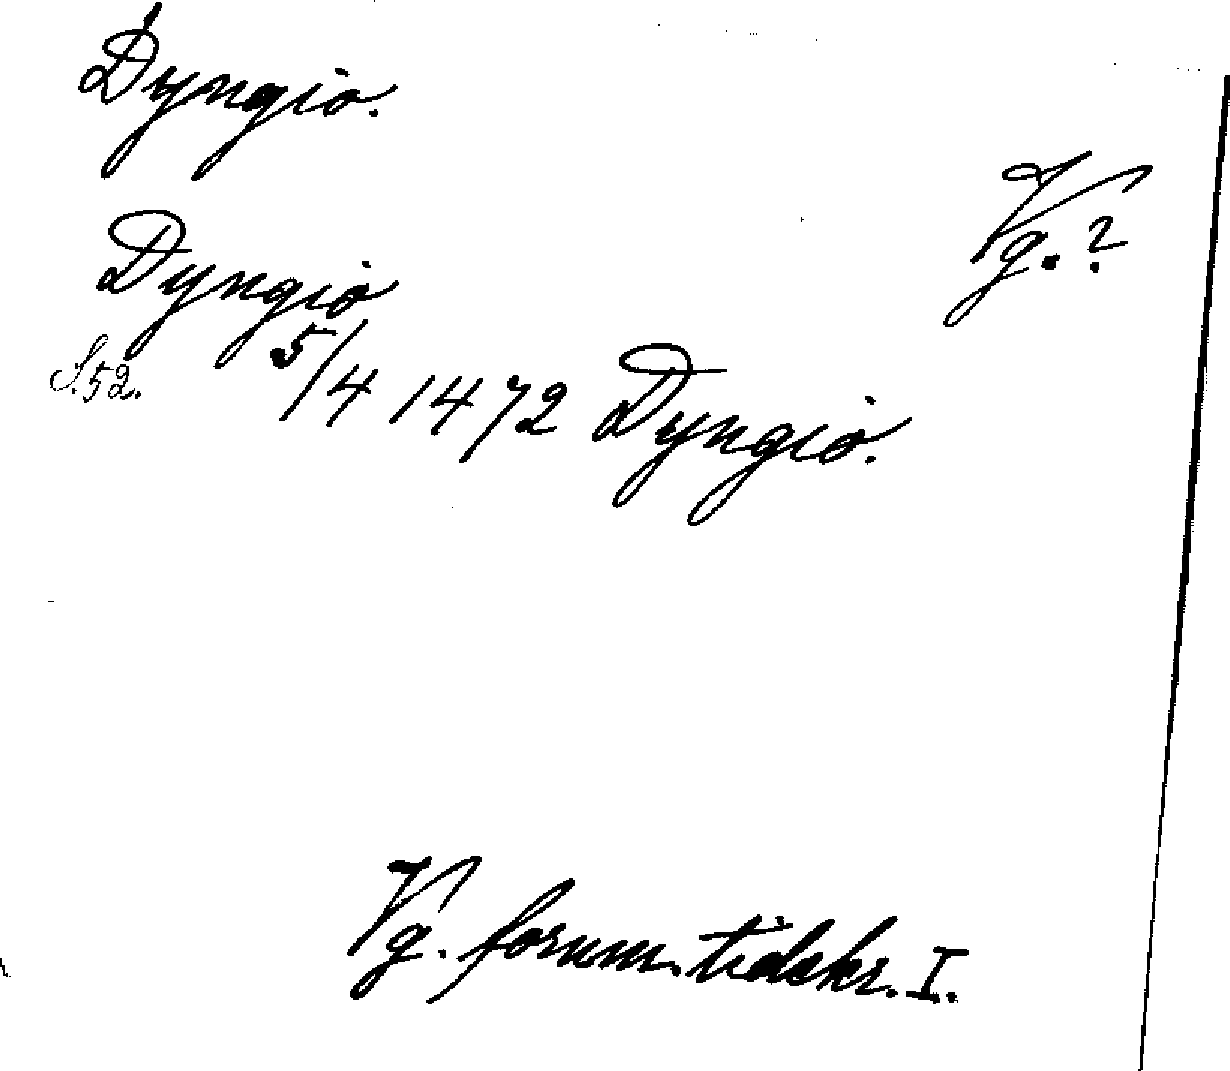 Dyngio.
Vg. ?
Dyngio
S. 52. 5/4 1472 Dyngio.
Vg. fornm. tidskr. I.